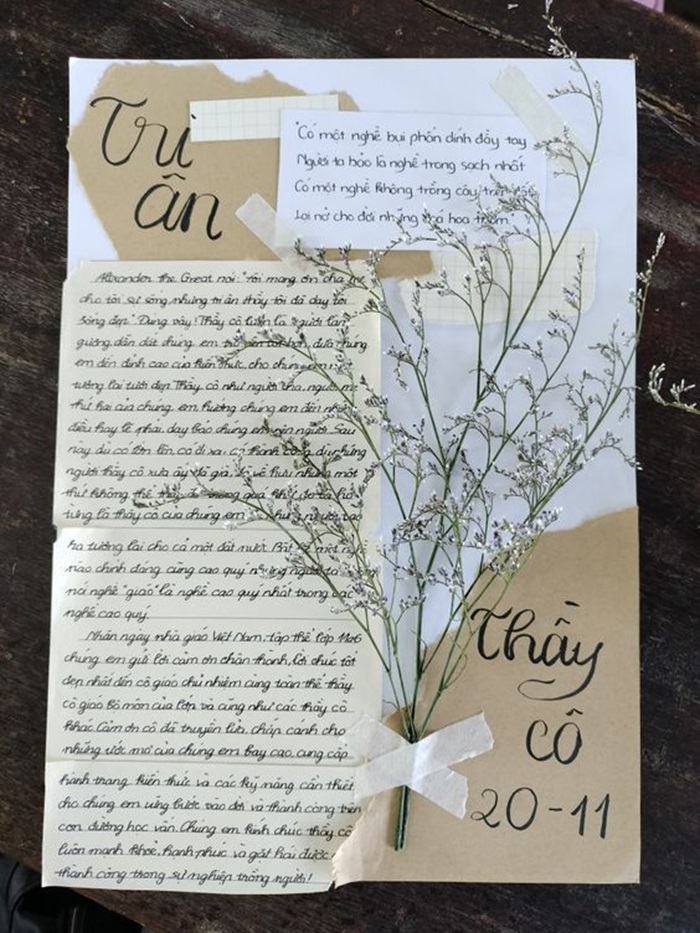 Tri
ân
"Có một nghề bụi phấn dính đầy tay
Người ta bảo là nghề trong sạch nhất
Có một nghề không trồng cây trên đất
Lại nở cho đời những đoá hoa thơm"
Alexander the Great nói: "Tôi mang ơn cha mẹ
cho tôi sự sống nhưng tri ân thầy tôi đã dạy tôi
sống đẹp". Đúng vậy! Thầy cô luôn là người làm
gương dẫn dắt chúng em trở nên tốt hơn, đưa chúng
em đến đỉnh cao của kiến thức, cho chúng em một
tương lai tươi đẹp. Thầy cô như người cha, người mẹ
thứ hai của chúng em, hướng chúng em đến những
điều hay lẽ phải, dạy bảo chúng em nên người. Sau
này, dù có lớn lên, có đi xa, có thành công dựng
người thầy cô xưa ấy đã già, đã về hưu nhưng một
thứ không thể thay đổi trong quá khứ đó là họ
từng là thầy cô của chúng em, người tạo
ra tương lai cho cả một đất nước. Bất kì một nghề
nào chính đáng cũng cao quý nhưng người ta
nói nghề "giáo" là nghề cao quý nhất trong các
nghề cao quý.
Nhân ngày nhà giáo Việt Nam, tập thể lớp
chúng em gửi lời cảm ơn chân thành, lời chúc tốt
đẹp nhất đến cô giáo chủ nhiệm cùng toàn thể thầy
cô giáo bộ môn của lớp và cũng như các thầy cô
khác. Cảm ơn cô đã truyền lửa, chắp cánh cho
những ước mơ của chúng em bay cao, cung cấp
hành trang, kiến thức và các kỹ năng cần thiết
cho chúng em vững bước vào đời và thành công trên
con đường học vấn. Chúng em kính chúc thầy cô
luôn mạnh khoẻ, hạnh phúc và gặt hái được
thành công trong sự nghiệp trồng người!
Thầy
cô
20-11